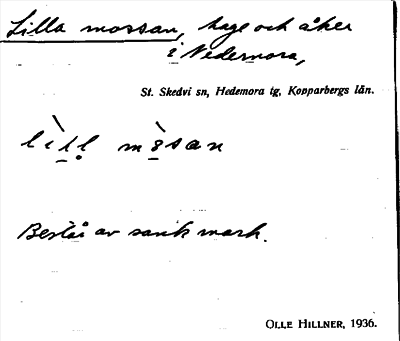 Lilla mossan, hage och åker
i Nedernora,
St. Skedvi sn, Hedemora tg, Kopparbergs län.
lìll mòsan
Består av sank mark.
OLLE HILLNER, 1936.